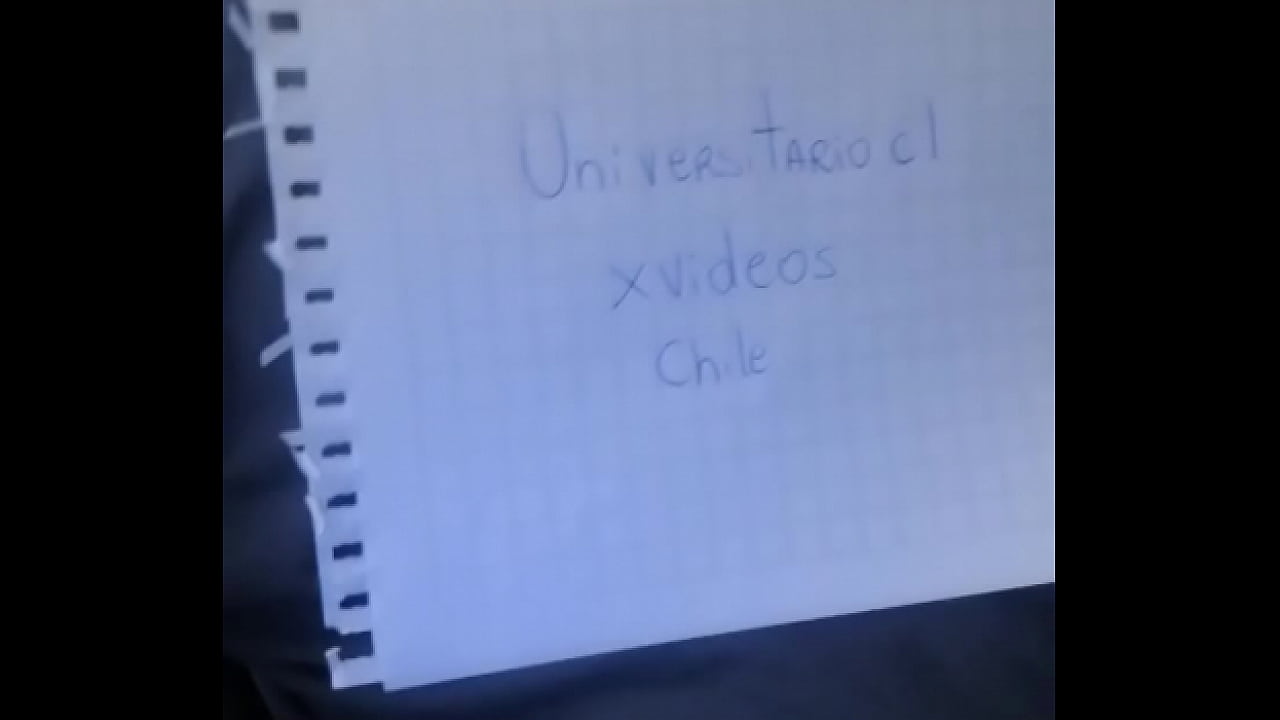 Universitario cl
xvideos
Chile